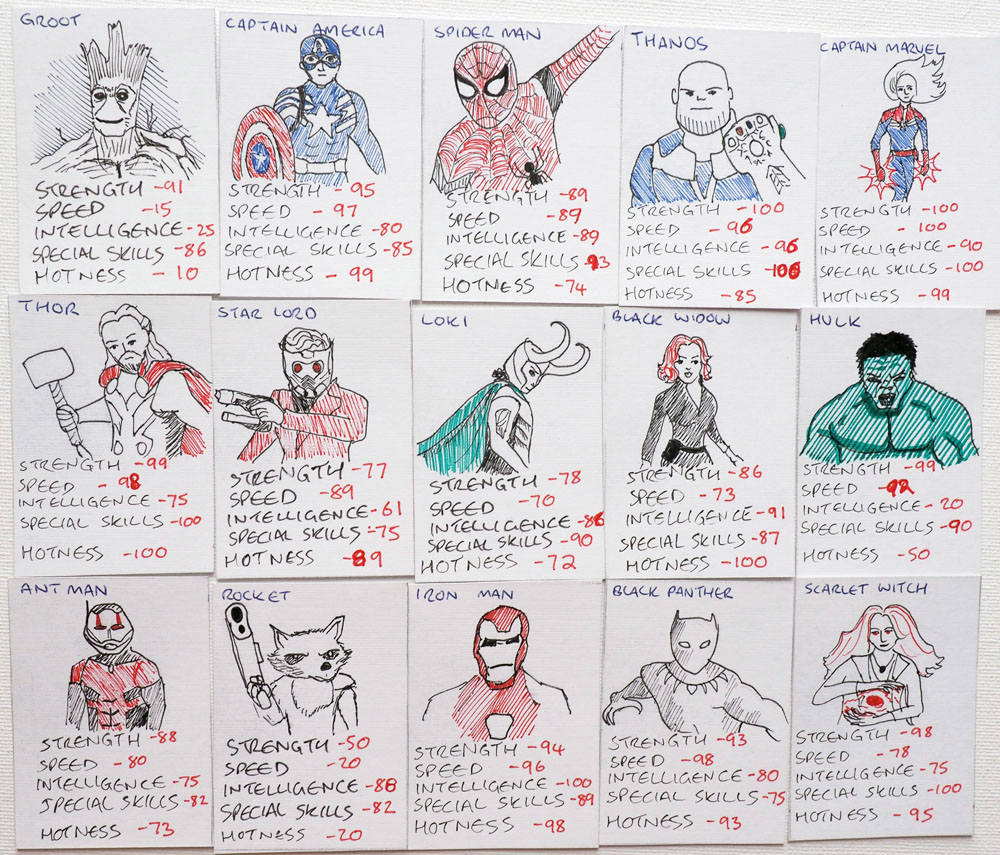 GROOT
STRENGTH -91
SPEED -15
INTELLIGENCE -25
SPECIAL SKILLS -86
HOTNESS - 10
CAPTAIN AMERICA
STRENGTH - 95
SPEED - 97
INTELLIGENCE -80
SPECIAL SKILLS -85
HOTNESS - 99
SPIDER MAN
STRENGTH -89
SPEED -89
INTELLIGENCE -89
SPECIAL SKILLS -93
HOTNESS - 74
THANOS
STRENGTH -100
SPEED - 96
INTELLIGENCE -96
SPECIAL SKILLS -100
HOTNESS -85
CAPTAIN MARVEL
STRENGTH -100
SPEED - 100
INTELLIGENCE -90
SPECIAL SKILLS -100
HOTNESS -99
THOR
STRENGTH -99
SPEED - 98
INTELLIGENCE -75
SPECIAL SKILLS -100
HOTNESS -100
STAR LORD
STRENGTH -77
SPEED -89
INTELLIGENCE -61
SPECIAL SKILLS -75
HOTNESS -89
LOKI
STRENGTH -78
SPEED -70
INTELLIGENCE -86
SPECIAL SKILLS -90
HOTNESS -72
BLACK WIDOW
STRENGTH -86
SPEED -73
INTELLIGENCE -91
SPECIAL SKILLS -87
HOTNESS -100
HULK
STRENGTH -99
SPEED -92
INTELLIGENCE - 20
SPECIAL SKILLS -90
HOTNESS -50
ANT MAN
STRENGTH -88
SPEED - 80
INTELLIGENCE -75
SPECIAL SKILLS -82
HOTNESS -73
ROCKET
STRENGTH -50
SPEED -20
INTELLIGENCE -88
SPECIAL SKILLS -82
HOTNESS -20
IRON MAN
STRENGTH -94
SPEED -96
INTELLIGENCE -100
SPECIAL SKILLS -89
HOTNESS -98
BLACK PANTHER
STRENGTH -93
SPEED -98
INTELLIGENCE -80
SPECIAL SKILLS -75
HOTNESS -93
SCARLET WITCH
STRENGTH -98
SPEED -78
INTELLIGENCE -75
SPECIAL SKILLS -100
HOTNESS - 95